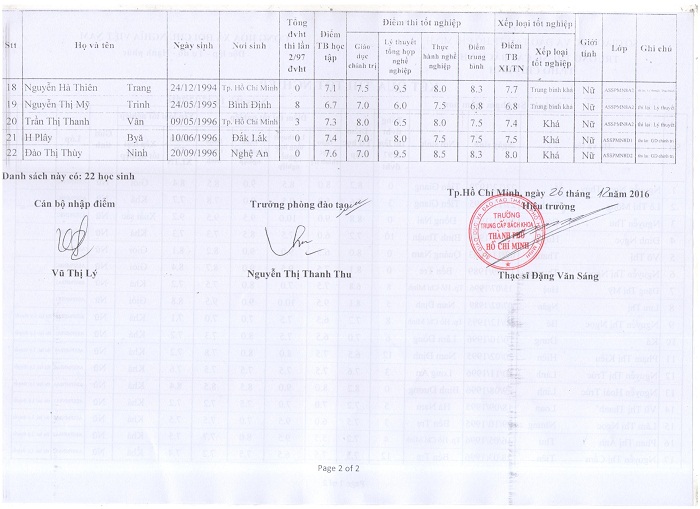 Stt Họ và tên Ngày sinh Nơi sinh Tổng đvht thi lần 2/97 đvht Điểm TB học tập Điểm thi tốt nghiệp Xếp loại tốt nghiệp Giới tính Lớp Ghi chú
Giáo dục chính trị Lý thuyết tổng hợp nghề nghiệp Thực hành nghề nghiệp Điểm trung bình Điểm TB XLTN Xếp loại tốt nghiệp
18 Nguyễn Hà Thiên Trang 24/12/1994 Tp. Hồ Chí Minh 0 7.1 7.5 9.5 8.0 8.3 7.7 Trung bình khá Nữ
19 Nguyễn Thị Mỹ Trinh 24/05/1995 Bình Định 8 6.7 7.0 6.0 7.5 6.8 6.8 Trung bình khá Nữ
20 Trần Thị Thanh Vân 09/05/1996 Tp. Hồ Chí Minh 3 7.3 8.0 6.5 8.0 7.5 7.4 Khá Nữ
21 H Plây Byă 10/06/1996 Đăk Lăk 0 7.4 7.0 8.0 7.5 7.5 7.5 Khá Nữ
22 Đào Thị Thùy Ninh 20/09/1996 Nghệ An 0 7.6 7.0 9.5 8.5 8.3 8.0 Khá Nữ
Danh sách này có: 22 học sinh
Tp.Hồ Chí Minh, ngày 26 tháng 12 năm 2016
Cán bộ nhập điểm Trưởng phòng đào tạo Hiệu trưởng
TRƯỜNG
TRUNG CẤP BÁCH KHOA
THÀNH PHỐ
HỒ CHÍ MINH
Vũ Thị Lý Nguyễn Thị Thanh Thu Thạc sĩ Đặng Văn Sáng
Page 2 of 2